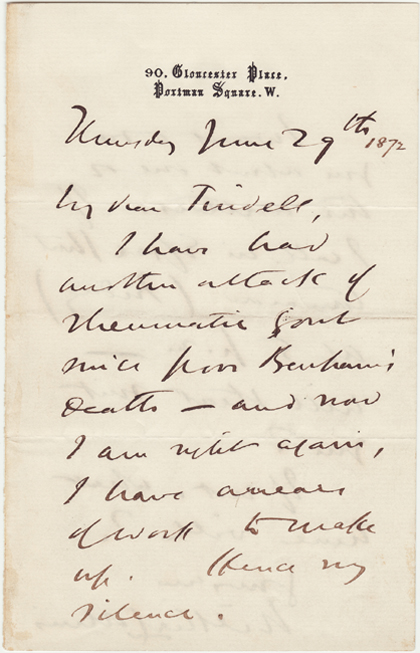 90. Gloucester Place,
Portman Square. W.
Thursday June 29th 1872
My dear Tindell,
I have had
another attack of
Rheumatic gout
since poor Benham's
death – and now
I am right again,
I have arrears
of work to make
up. Hence my
silence.